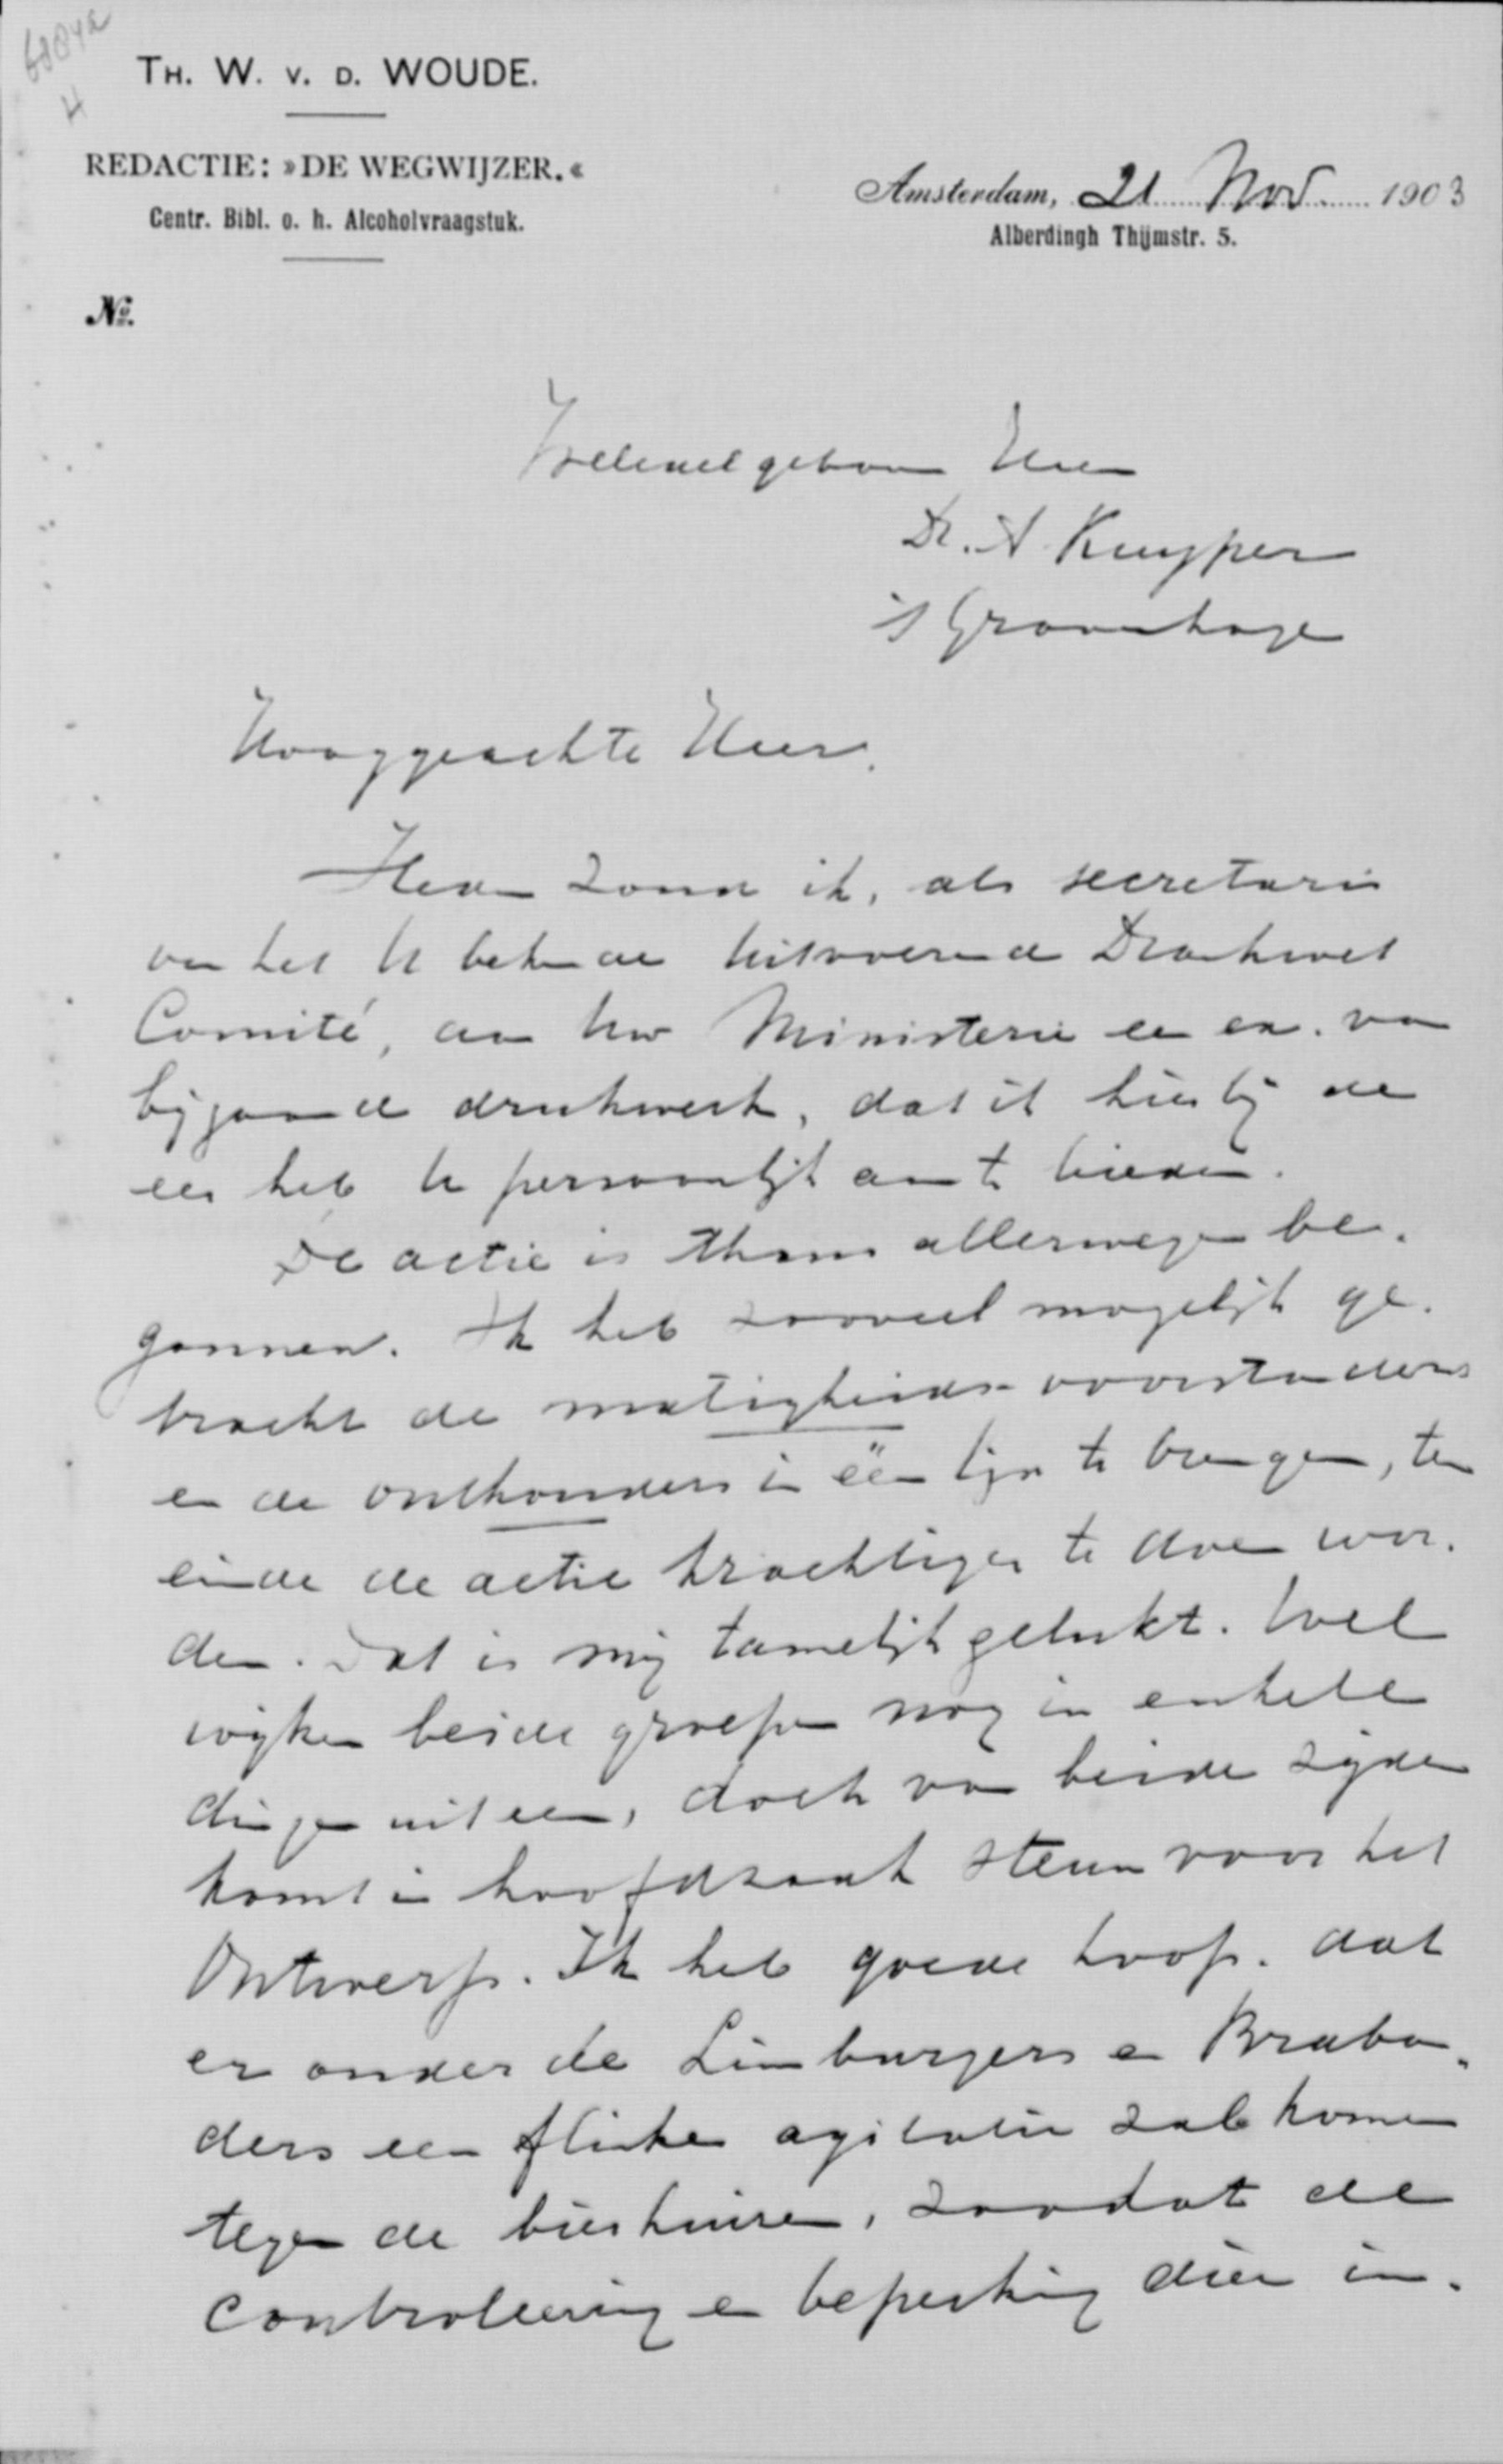 6804a
4
TH. W. V. D. WOUDE.
REDACTIE: »DE WEGWIJZER.«
Centr. Bibl. o. h. Alcoholvraagstuk.
Amsterdam, 21 Nov. 1903
Alberdingh Thijmstr. 5.
No.
Weledelgeboren Heer
Dr. A Kuyper
's Gravenhage
Hooggeachte Heer.
Heden zond ik, als secretaris
van het U bekende Uitvoerend Drankwet
Comité, aan Uw Ministerie een ex. van
bijgaande drukwerk, dat ik hierbij de
eer heb U persoonlijk aan te bieden.
De actie is thans allerwegen be-
gonnen. Ik heb zooveel mogelijk ge-
tracht de matigheids-voorstanders
en de onthouders in één lijn te brengen, ten
einde de actie krachtiger te doen wor-
den. Dat is mij tamelijk gelukt. Wel
wijken beide groepen nog in enkele
dingen uiteen, doch van beide zijden
komt in hoofdzaak steun voor het
Ontwerp. Ik heb goede hoop. dat
er onder de Limburgers en Braban-
ders een flinke agitatie zal komen
tegen de bierhuizen, zoodat de
controleering en beperking dier in-